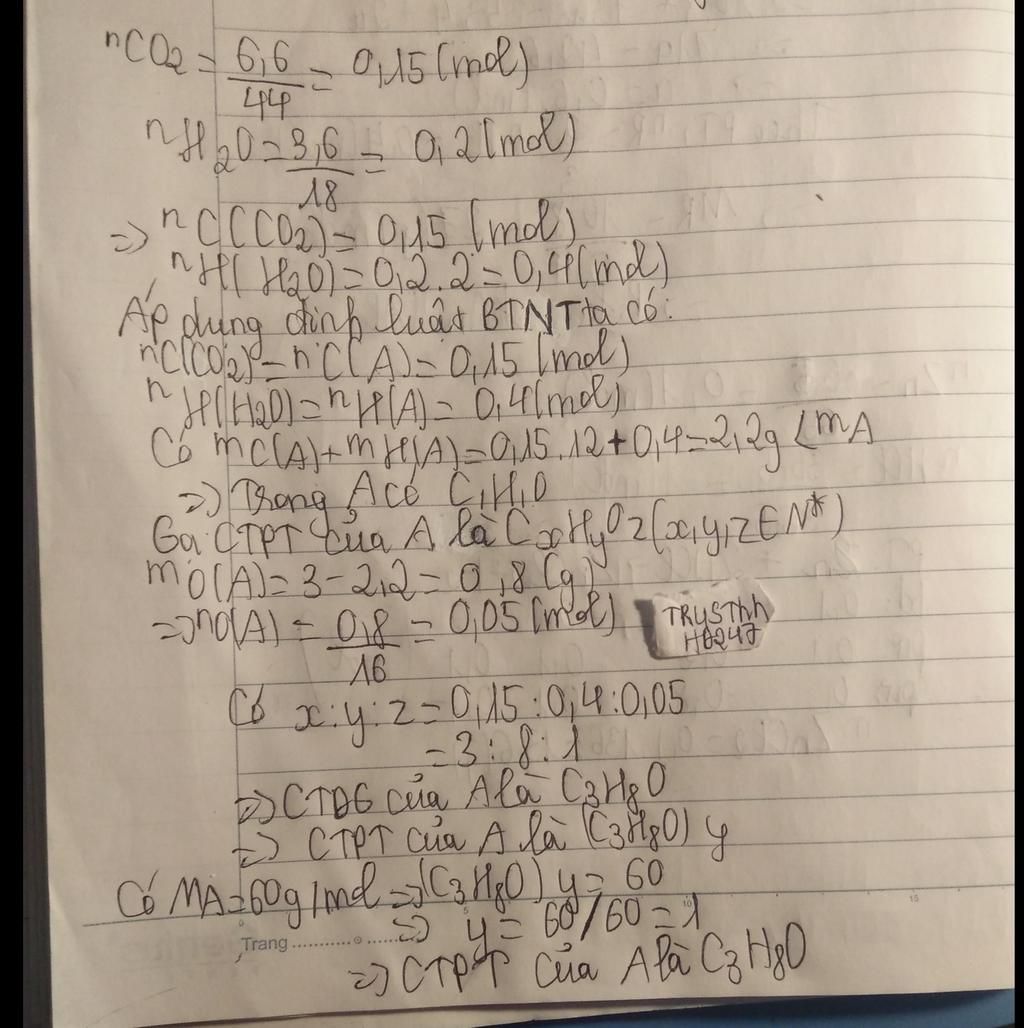 nCO2 = 6,6/44 = 0,15 (mol)
nH2O = 3,6/18 = 0,2 (mol)
=> nC(CO2) = 0,15 (mol)
nH(H2O) = 0,2.2 = 0,4 (mol)
Áp dụng định luật BTNT ta có:
nC(CO2) = nC(A) = 0,15 (mol)
nH(H2O) = nH(A) = 0,4 (mol)
Có mC(A) + mH(A) = 0,15.12 + 0,4 = 2,2g < mA
=> Trong A có C,H,O
Gọi CTPT của A là CxHyOz (x,y,z ∈ N*)
mO(A) = 3 - 2,2 = 0,8 (g)
=> nO(A) = 0,8/16 = 0,05 (mol)
TRYSThh
H0247
Có x : y : z = 0,15 : 0,4 : 0,05
= 3 : 8 : 1
=> CTĐG của A là C3H8O
=> CTPT của A là (C3H8O) y
Có MA = 60g/mol => (C3H8O) y = 60
=> y = 60/60 = 1
5 10 15
Trang
=> CTPT của A là C3H8O